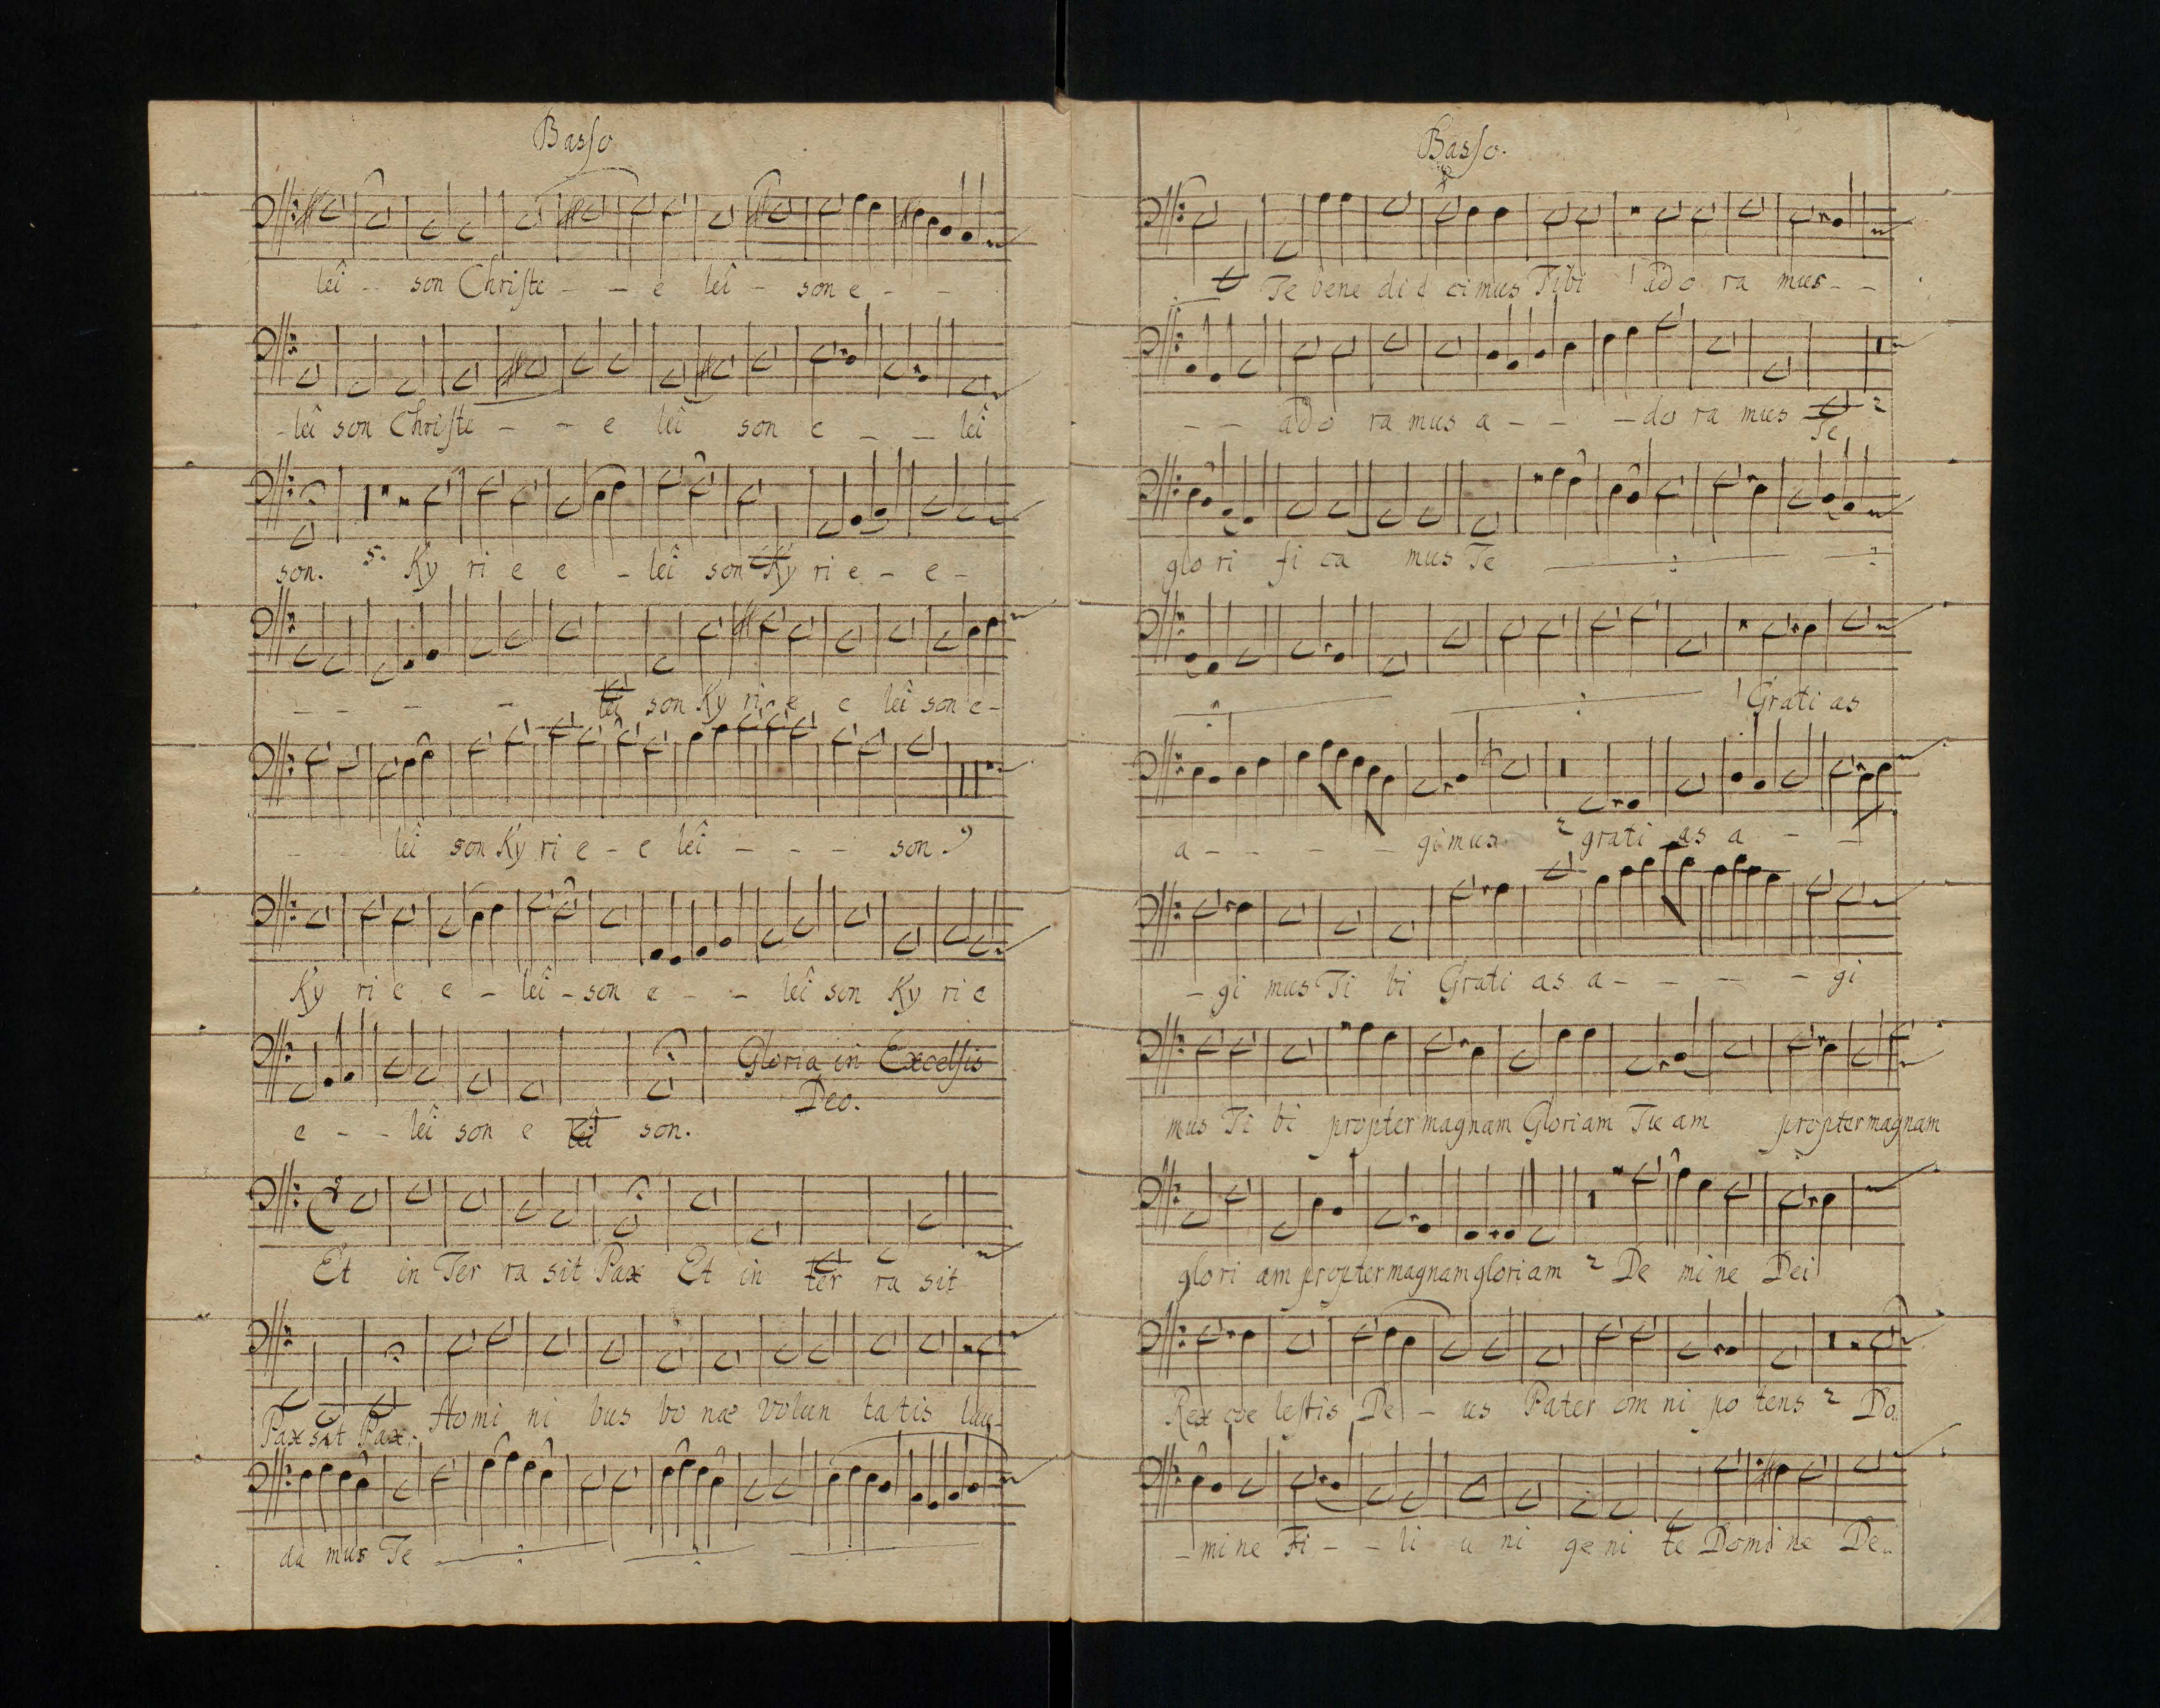 Basso
lei - - son Christe - - e lei - son e - -
- lei son Christe - - e lei son e - - lei
son. 5. Ky ri e e - lei son Ky ri e - e -
- - - - lei son Ky ri e e lei son e -
- - lei son Ky ri e - e lei - - - son.
Ky ri e e - lei - son e - - lei son Ky ri e
Gloria in Excelsis
Deo.
e - - lei son e lei son.
Et in Ter ra sit Pax Et in ter ra sit
Pax sit Pax. Homi ni bus bo næ volun ta tis lau-
da mus Te
Basso.
Te bene di ci mus Tibi ado ra mus - -
- - ado ra mus a - - - do ra mus Te 2
glo ri fi ca mus Te
1 Grati as
a - - - - gimus 2 grati as a - -
- gi mus Ti bi Grati as a - - - - gi
mus Ti bi propter magnam Gloriam Tu am propter magnam
glo ri am propter magnam gloriam 2 De mi ne Dei
Rex coe lestis De - us Pater om ni po tens 2 Do..
- mi ne Fi - - li u ni ge ni te Domi ne De..